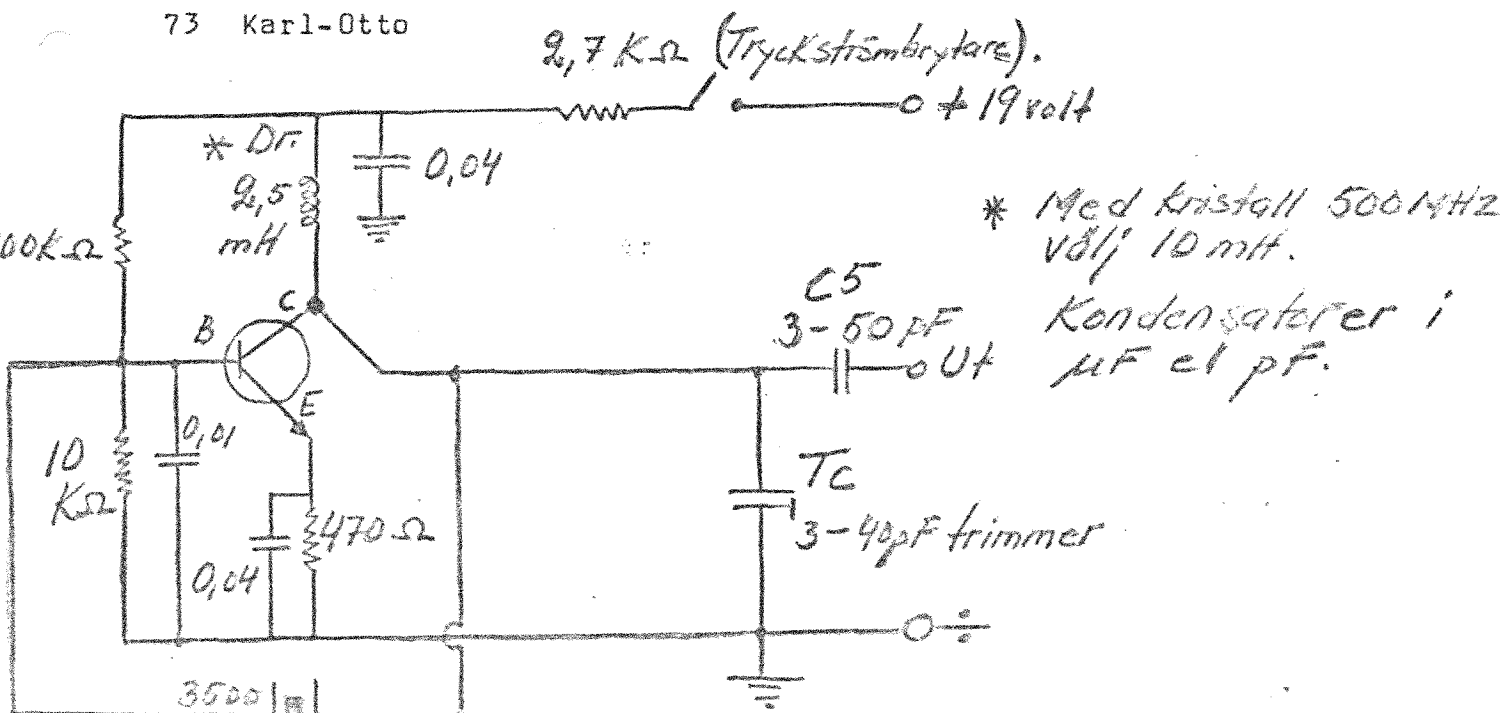 73 Karl-Otto
2,7 KΩ (Tryckströmbrytare).
+ 19 volt
* Dr.
2,5
mH
0,04
* Med kristall 500 MHz
välj 10 mH.
Kondensatorer i
µF el pF.
00KΩ
C
B
E
C5
3-50pF
Ut
10
KΩ
0,01
470Ω
0,04
Tc
3-40pF trimmer
÷
3500